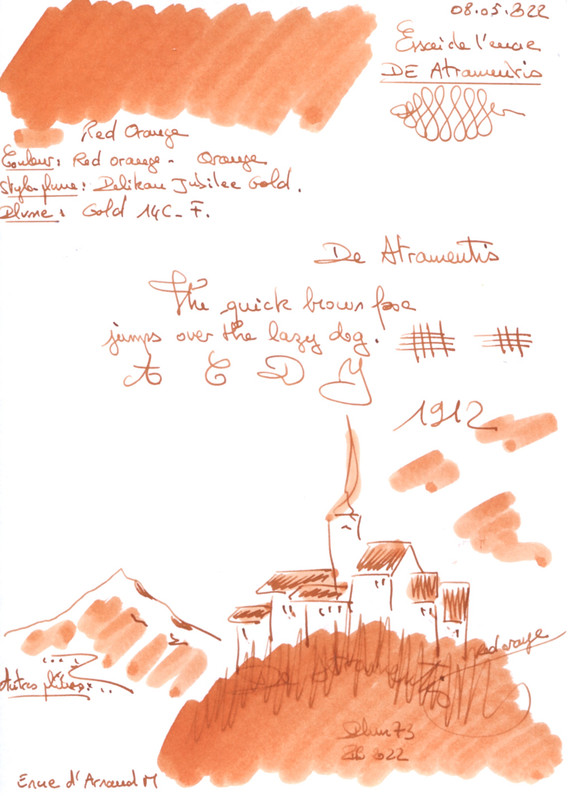 08.05.2022
Essai de l'encre
DE Atramentis
Red Orange
Couleur: Red orange - Orange
Stylo-plume: Pelikan Jubilee Gold.
Plume: Gold 14C - F.
De Atramentis
The quick brown foxe
jumps over the lazy dog.
A C D Y
1912
red orange
De Atramentis
Autres pleines:
Plum73
2022
Encre d'Arnaud M